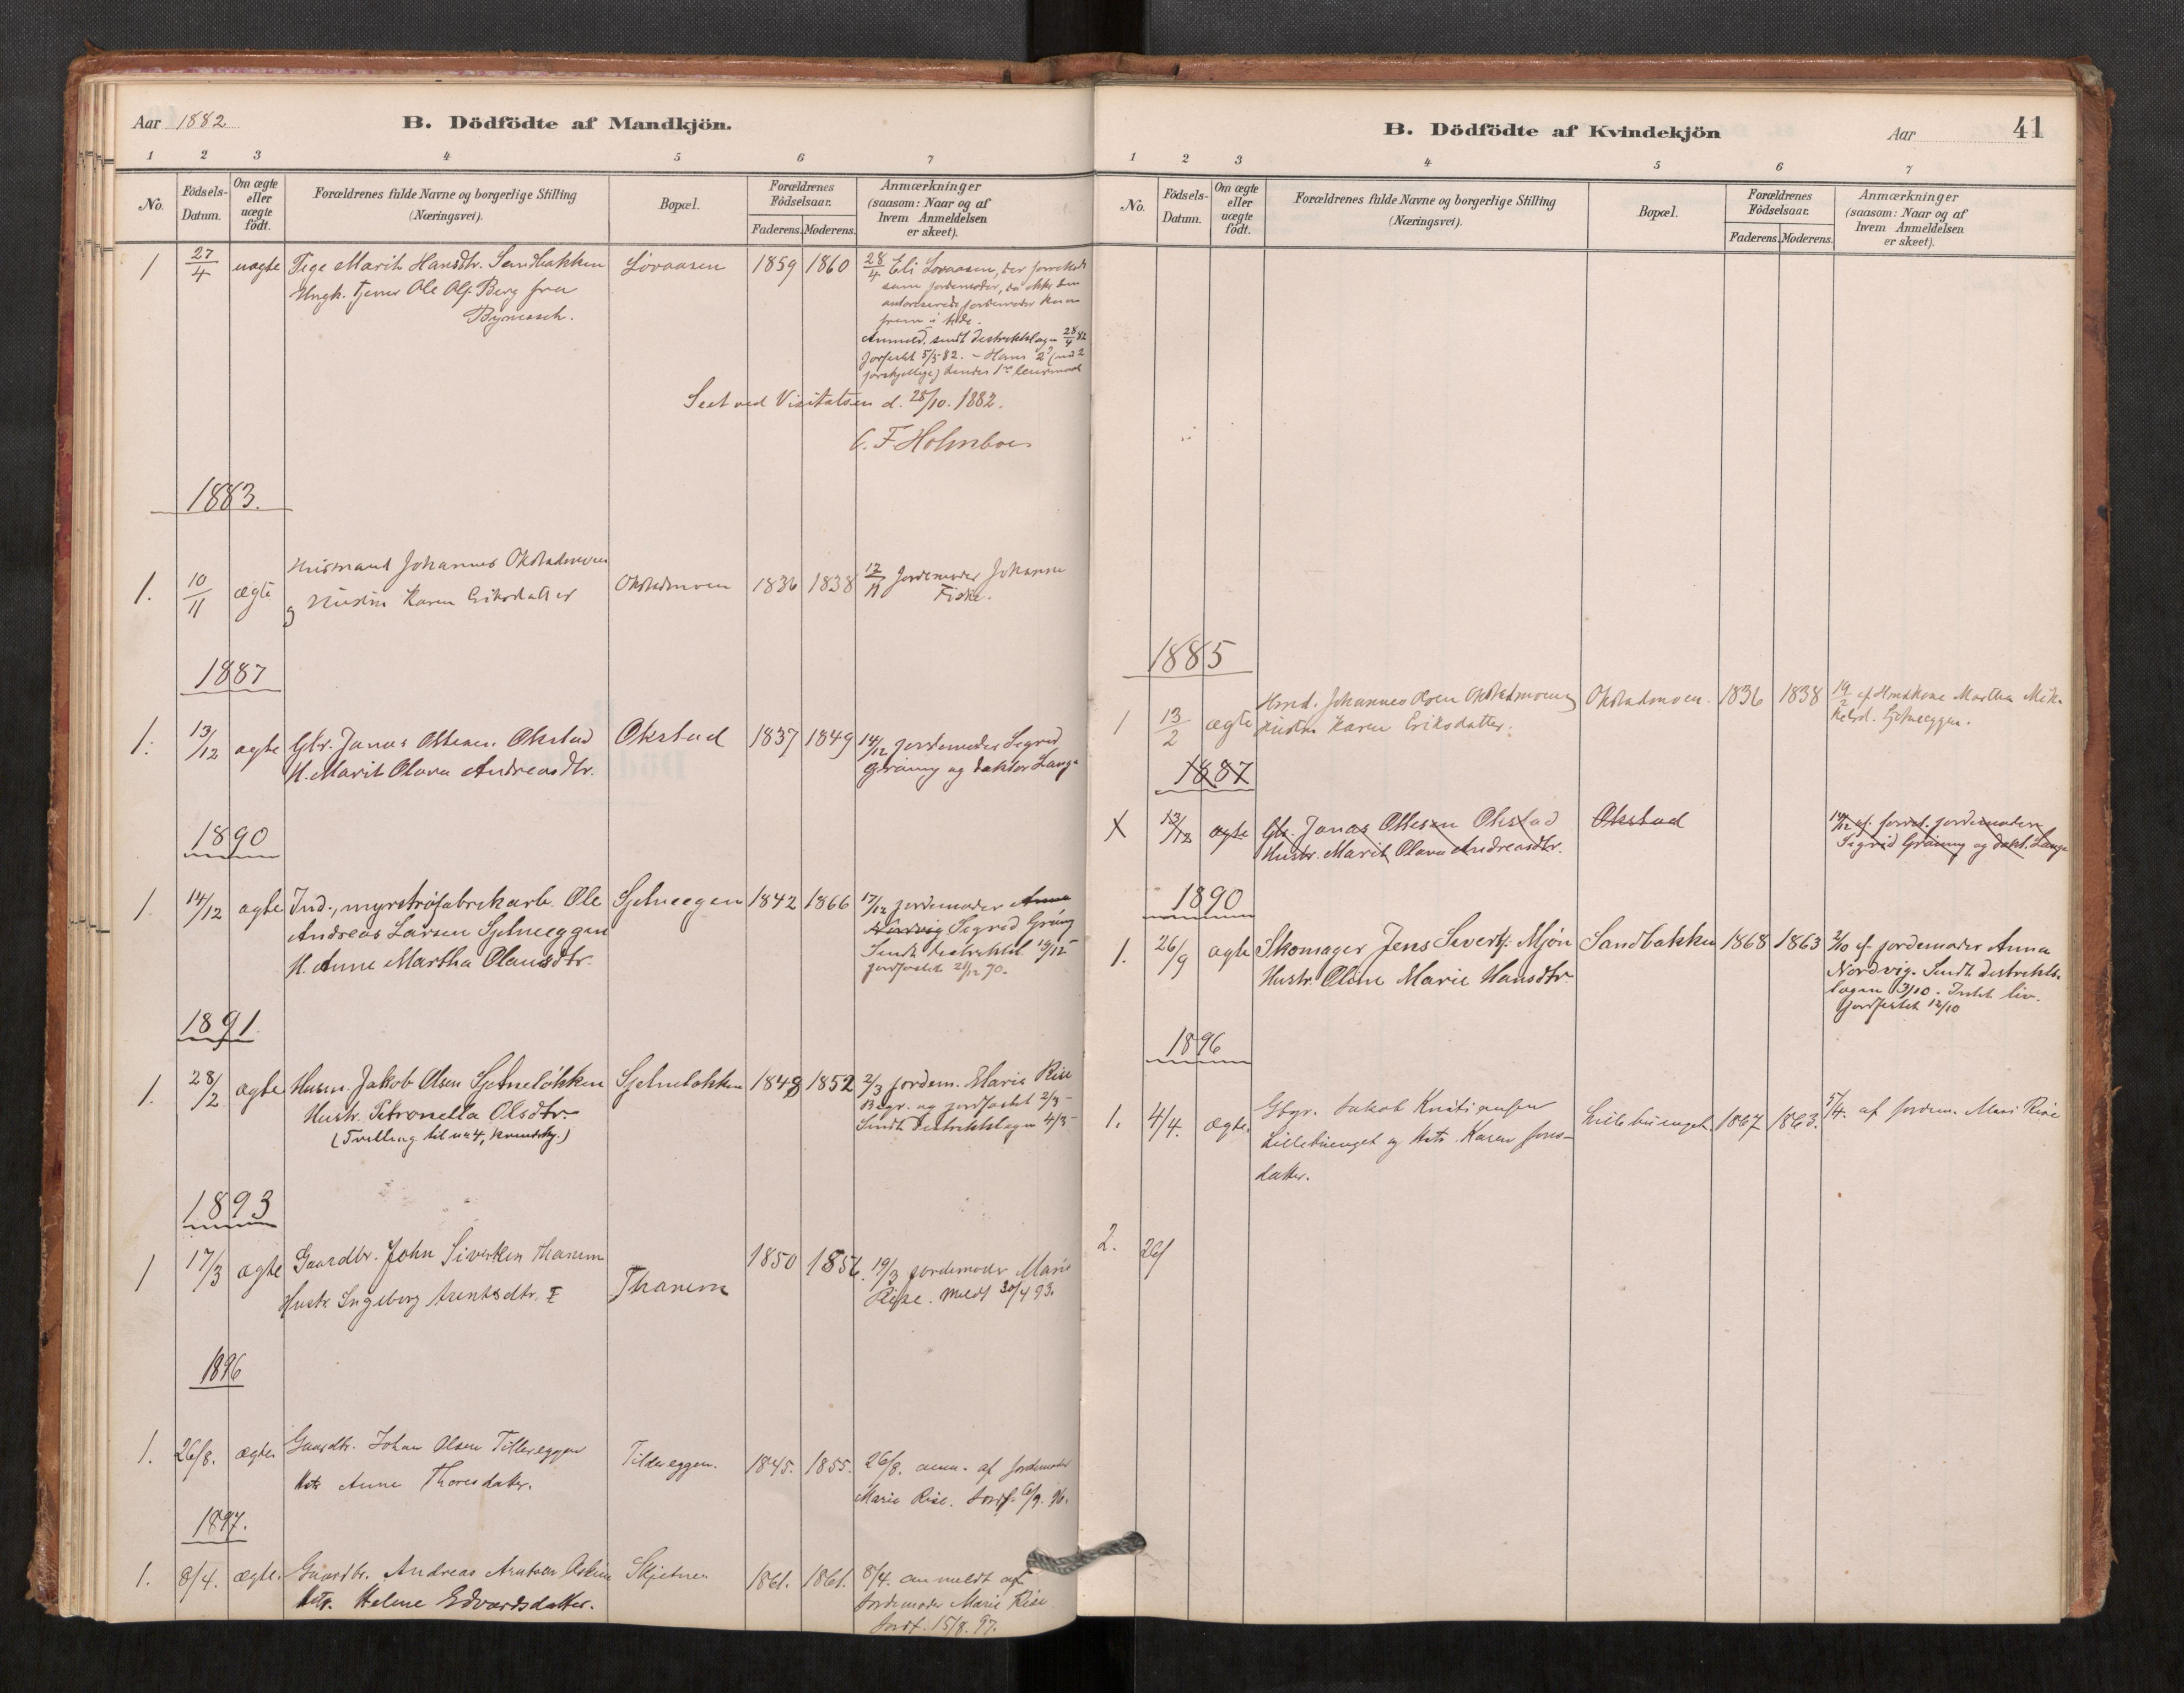 Aar 1882
B. Dödfödte af Mandkjön.
1 2 3 4 5 6 7
No.
Födsels-Datum.
Om ægte eller uægte födt.
Forældrenes fulde Navne og borgerlige Stilling (Næringsvei).
Bopæl.
Forældrenes Födselsaar.
Faderens. Moderens.
Anmærkninger (saasom: Naar og af hvem Anmeldelsen er skeet).
1 27/4 uægte Pige Marit Hansdtr. Sandbakken Lövaasen 1859 1860 28/4 Eli Lövaasen, der
Ungk. tjener Ole Ols. Berg fra
Bynesset.
som jordemoder, da ikke den
autoriserede jordemoder kunne
frem i tide.
Anmeld. sendt destriktslægen 28/4 82
jordfestet 5/5 82. - Hans 2 (med 2
forskjellige) hendes 1ste leiermaal
Seet ved Visitatsen d. 25/10. 1882.
C. F. Holmboe
1883.
1. 10/11 ægte Husmand Johannes Okstadmoen
og Hustru Karen Eriksdatter
Okstadmoen 1836 1838 12/11 Jordemoder Johanna
Fiske.
1887
1. 13/12 ægte Gbr. Jonas Ottesen Okstad Okstad 1837 1849 14/12 jordemoder Sigrid
H. Marit Olava Andreasdtr.
Gräung og doktor Lange
1890
1 14/12 ægte Ind., myrströfabrikarb. Ole Sjetneggen 1842 1866 17/12 jordemoder Anna
Andreas Larsen Sjetneeggen
Nordvig Sigrid Gräung
H. Anne Martha Olausdtr.
Sendt destriktsl. 19/12
jordfestet 21/12 90.
1891.
1. 28/2 ægte Husm. Jakob Olsen Sjetneløkken Sjetneløkken 1848 1852 2/3 jordem. Marie Rise
Hustr. Petronella Olsdtr.
Begr. og jordfestet 2/3 -
(Tvilling til no 4, kvindekj.)
Sendt destriktslægen 4/3 -
1893
1 17/3 ægte Gaardbr. John Sivertsen Thanem
Hustr. Ingeborg Arentsdtr.
Thanem 1850 1856. 19/3 jordemoder Marie
Rise. meldt 30/4 93.
1896
1. 26/8. ægte Gaardbr. Johan Olsen Tillereggen
Hstr Anne Thoresdatter.
Tildereggen. 1845. 1855. 26/8. anm. af Jordemoder
Marie Rise. Jordf. 6/9. 96.
1897.
1. 8/4. ægte. Gaardbr. Andreas Arntsen
Hstr. Helene Edvardsdatter.
Skjetne 1861. 1861. 8/4. anmeldt af
Jordemoder Marie Rise
Jordf. 15/8. 97.
B. Dödfödte af Kvindekjön
Aar
41
1 2 3 4 5 6 7
No.
Födsels-Datum.
Om ægte eller uægte födt.
Forældrenes fulde Navne og borgerlige Stilling (Næringsvei).
Bopæl.
Forældrenes Födselsaar.
Faderens. Moderens.
Anmærkninger (saasom: Naar og af hvem Anmeldelsen er skeet).
1885
1 13/2 ægte Hmd. Johannes Olsen Okstadmoen og Okstadmoen. 1836 1838 19/2 af Hmdkone Martha Mik-
Hustru Karen Eriksdatter.
kelsd. Sjetneeggen.
1887
13/12 ægte Gbr. Jonas Ottesen Okstad Okstad
Hustr. Marit Olava Andreasdtr.
14/12 af jordemoder
Sigrid Gräung og dokt. Lange
1890
1. 26/9 ægte Skomager Jens Sivertj. Mjön Sandbakken 1868 1863 2/10 af jordemoder Anna
Hustr. Oline Marie Hansdtr.
Nordvig. Sendt destrikts-
lægen 3/10. Intet liv.
jordfestet 12/10
1896
1. 4/4. ægte. Gbgr. Jakob Kristiansen
Lillebuenget og Hstr. Karen Jons-
datter.
Lillebuenget. 1867 1863. 5/4. af jordem. Mari Rise
2. 26/